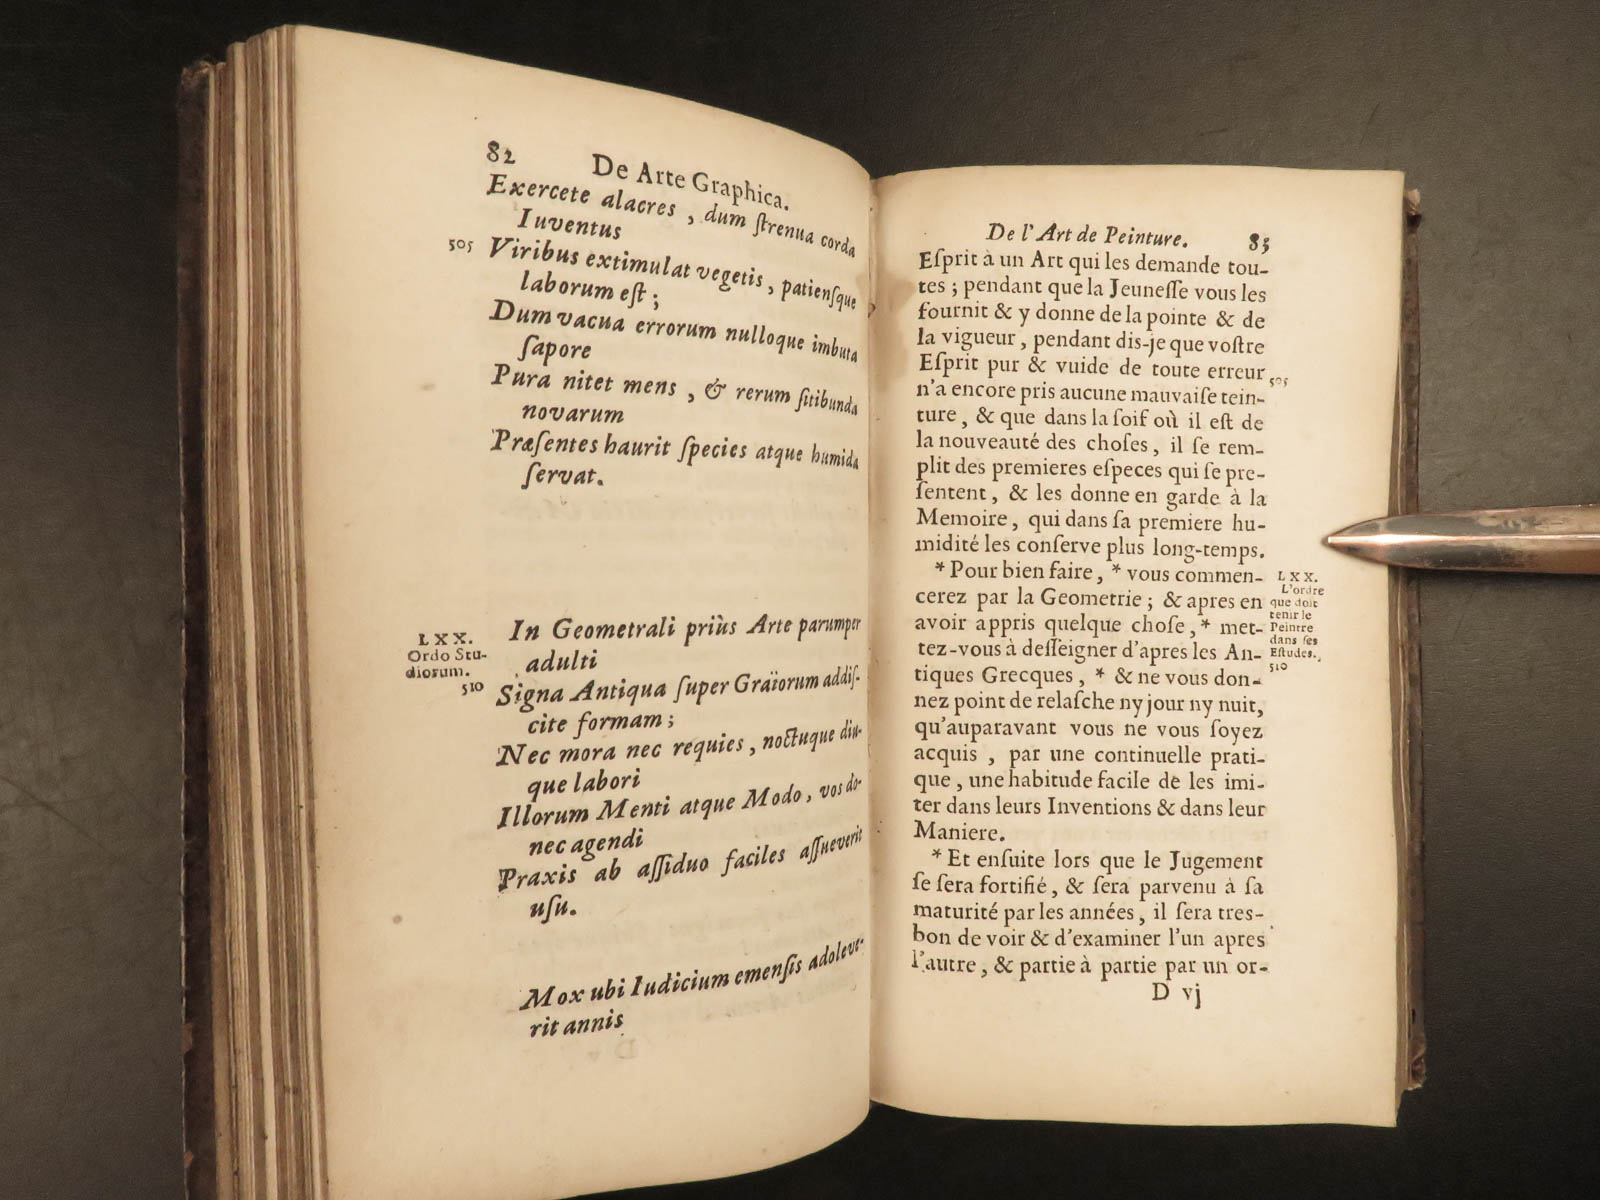 82
De Arte Graphica.
Exercete alacres, dum ſtrenua corda
Iuventus
505
Viribus extimulat vegetis, patienſque
laborum eſt;
Dum vacua errorum nulloque imbuta
ſapore
Pura nitet mens, & rerum ſitibunda
novarum
Præſentes haurit ſpecies atque humida
ſervat.
LXX.
Ordo Stu-
diorum.
510
In Geometrali priùs Arte parumper
adulti
Signa Antiqua ſuper Graïorum addiſ-
cite formam;
Nec mora nec requies, noctuque diu-
que labori
Illorum Menti atque Modo, vos do-
nec agendi
Praxis ab aſſiduo faciles aſſueverit
uſu.
Mox ubi Iudicium emenſis adoleve-
rit annis
De l'Art de Peinture.
83
Eſprit à un Art qui les demande tou-
tes; pendant que la Jeuneſſe vous les
fournit & y donne de la pointe & de
la vigueur, pendant dis-je que voſtre
Eſprit pur & vuide de toute erreur
505
n'a encore pris aucune mauvaiſe tein-
ture, & que dans la ſoif où il eſt de
la nouveauté des choſes, il ſe rem-
plit des premieres eſpeces qui ſe pre-
ſentent, & les donne en garde à la
Memoire, qui dans ſa premiere hu-
midité les conſerve plus long-temps.
* Pour bien faire, * vous commen-
cerez par la Geometrie; & apres en
avoir appris quelque choſe, * met-
tez-vous à deſſeigner d'apres les An-
tiques Grecques, * & ne vous don-
nez point de relaſche ny jour ny nuit,
qu'auparavant vous ne vous ſoyez
acquis, par une continuelle prati-
que, une habitude facile de les imi-
ter dans leurs Inventions & dans leur
Maniere.
LXX.
L'ordre
que doit
tenir le
Peintre
dans ſes
Eſtudes.
510
* Et enſuite lors que le Jugement
ſe ſera fortifié, & ſera parvenu à ſa
maturité par les années, il ſera tres-
bon de voir & d'examiner l'un apres
l'autre, & partie à partie par un or-
D vj